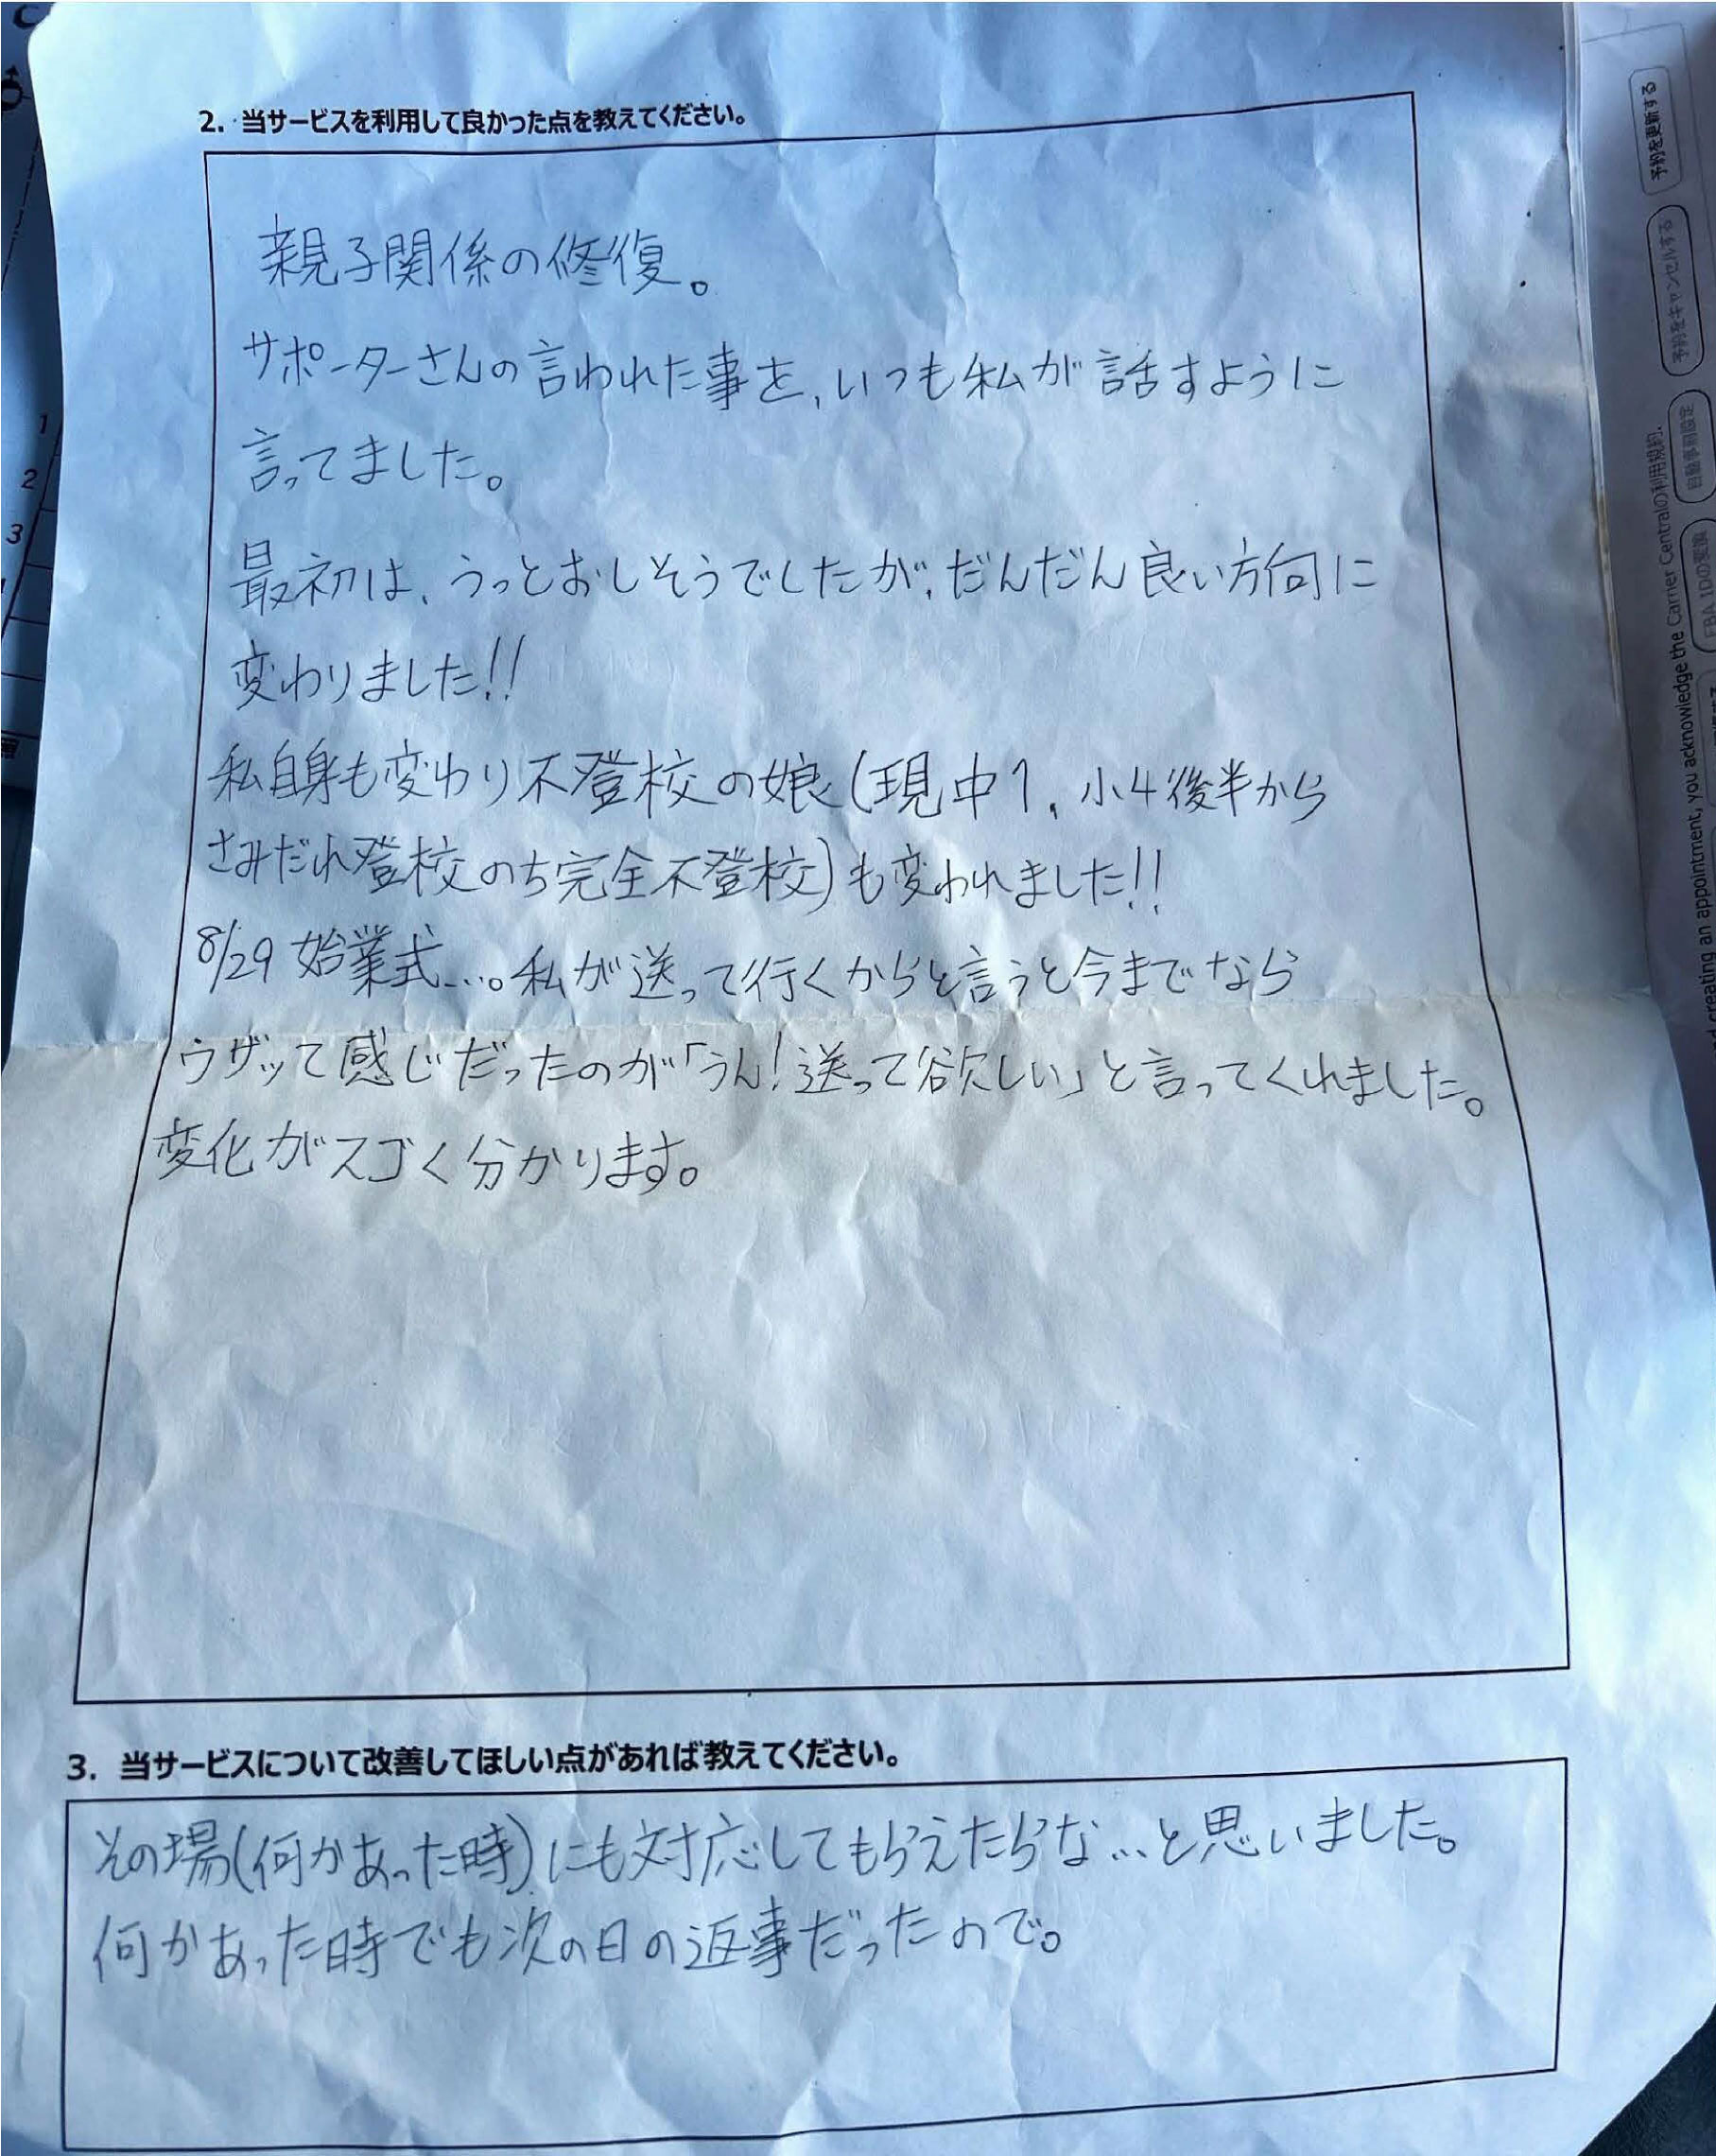 2. 当サービスを利用して良かった点を教えてください。
親子関係の修復。
サポーターさんの言われた事を、いつも私が話すように
言ってました。
最初は、うっとおしそうでしたが、だんだん良い方向に
変わりました!!
私自身も変わり不登校の娘(現中1、小4後半から
さみだれ登校のち完全不登校)も変われました!!
8/29 始業式…。私が送って行くからと言うと今までなら
ウザッて感じだったのが「うん!送って欲しい」と言ってくれました。
変化がスゴく分かります。
3. 当サービスについて改善してほしい点があれば教えてください。
その場(何かあった時)にも対応してもらえたらな…と思いました。
何かあった時でも次の日の返事だったので。
予約を更新する
予約をキャンセルする
自動事前設定
FBA IDの変換
creating an appointment, you acknowledge the Carrier Centralの利用規約.
1
2
3